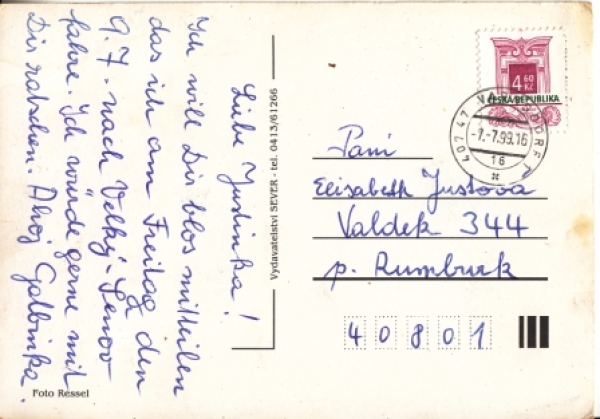 Liebe Justinka!
Ich will Dir blos mitteilen
das ich am Freitag den
9.7. nach Velký-Šenov
fahre. Ich würde gerne mit
Dir ratschen. Ahoj Galbinka.
Foto Ressel
Vydavatelství SEVER - tel. 0413/61266
4 60
Kč
ČESKÁ REPUBLIKA
407 47 VARNSDORF 1
-7.-7.99.16
16
Paní
Elisabeth Justová
Valdek 344
p. Rumburk
40801